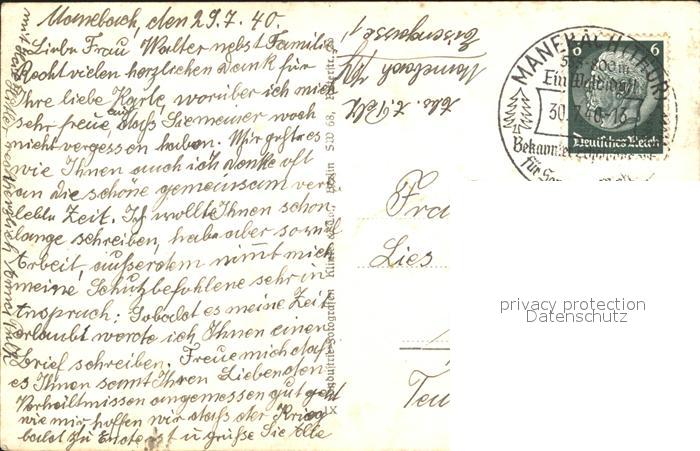 Manebach, den 29.7.40.
Liebe Frau Walter nebst Familie
Recht vielen herzlichen Dank für
Ihre liebe Karte, worüber ich mich
sehr freue, daß Sie meiner noch
nicht vergessen haben. Mir geht es
wie Ihnen auch ich denke oft
an die schöne gemeinsam ver
lebte Zeit. Ich wollte Ihnen schon
lange schreiben, habe aber so viel
Arbeit, außerdem nimmt mich
meine Schutzbefohlene sehr in
Anspruch. Sobald es meine Zeit
erlaubt werde ich Ihnen einen
Brief schreiben. Freue mich daß
es Ihnen samt Ihren Lieben den
Verhältnissen angemessen gut geht
wie wir hoffen wir daß der Krieg
bald zu Ende ist u grüße Sie Alle
Manebach
MANEBACH (THÜR)
30.7.40-16
Bekannter
für
6 6
Deutsches Reich
Fra
Lies
SW 68,
privacy protection
Datenschutz